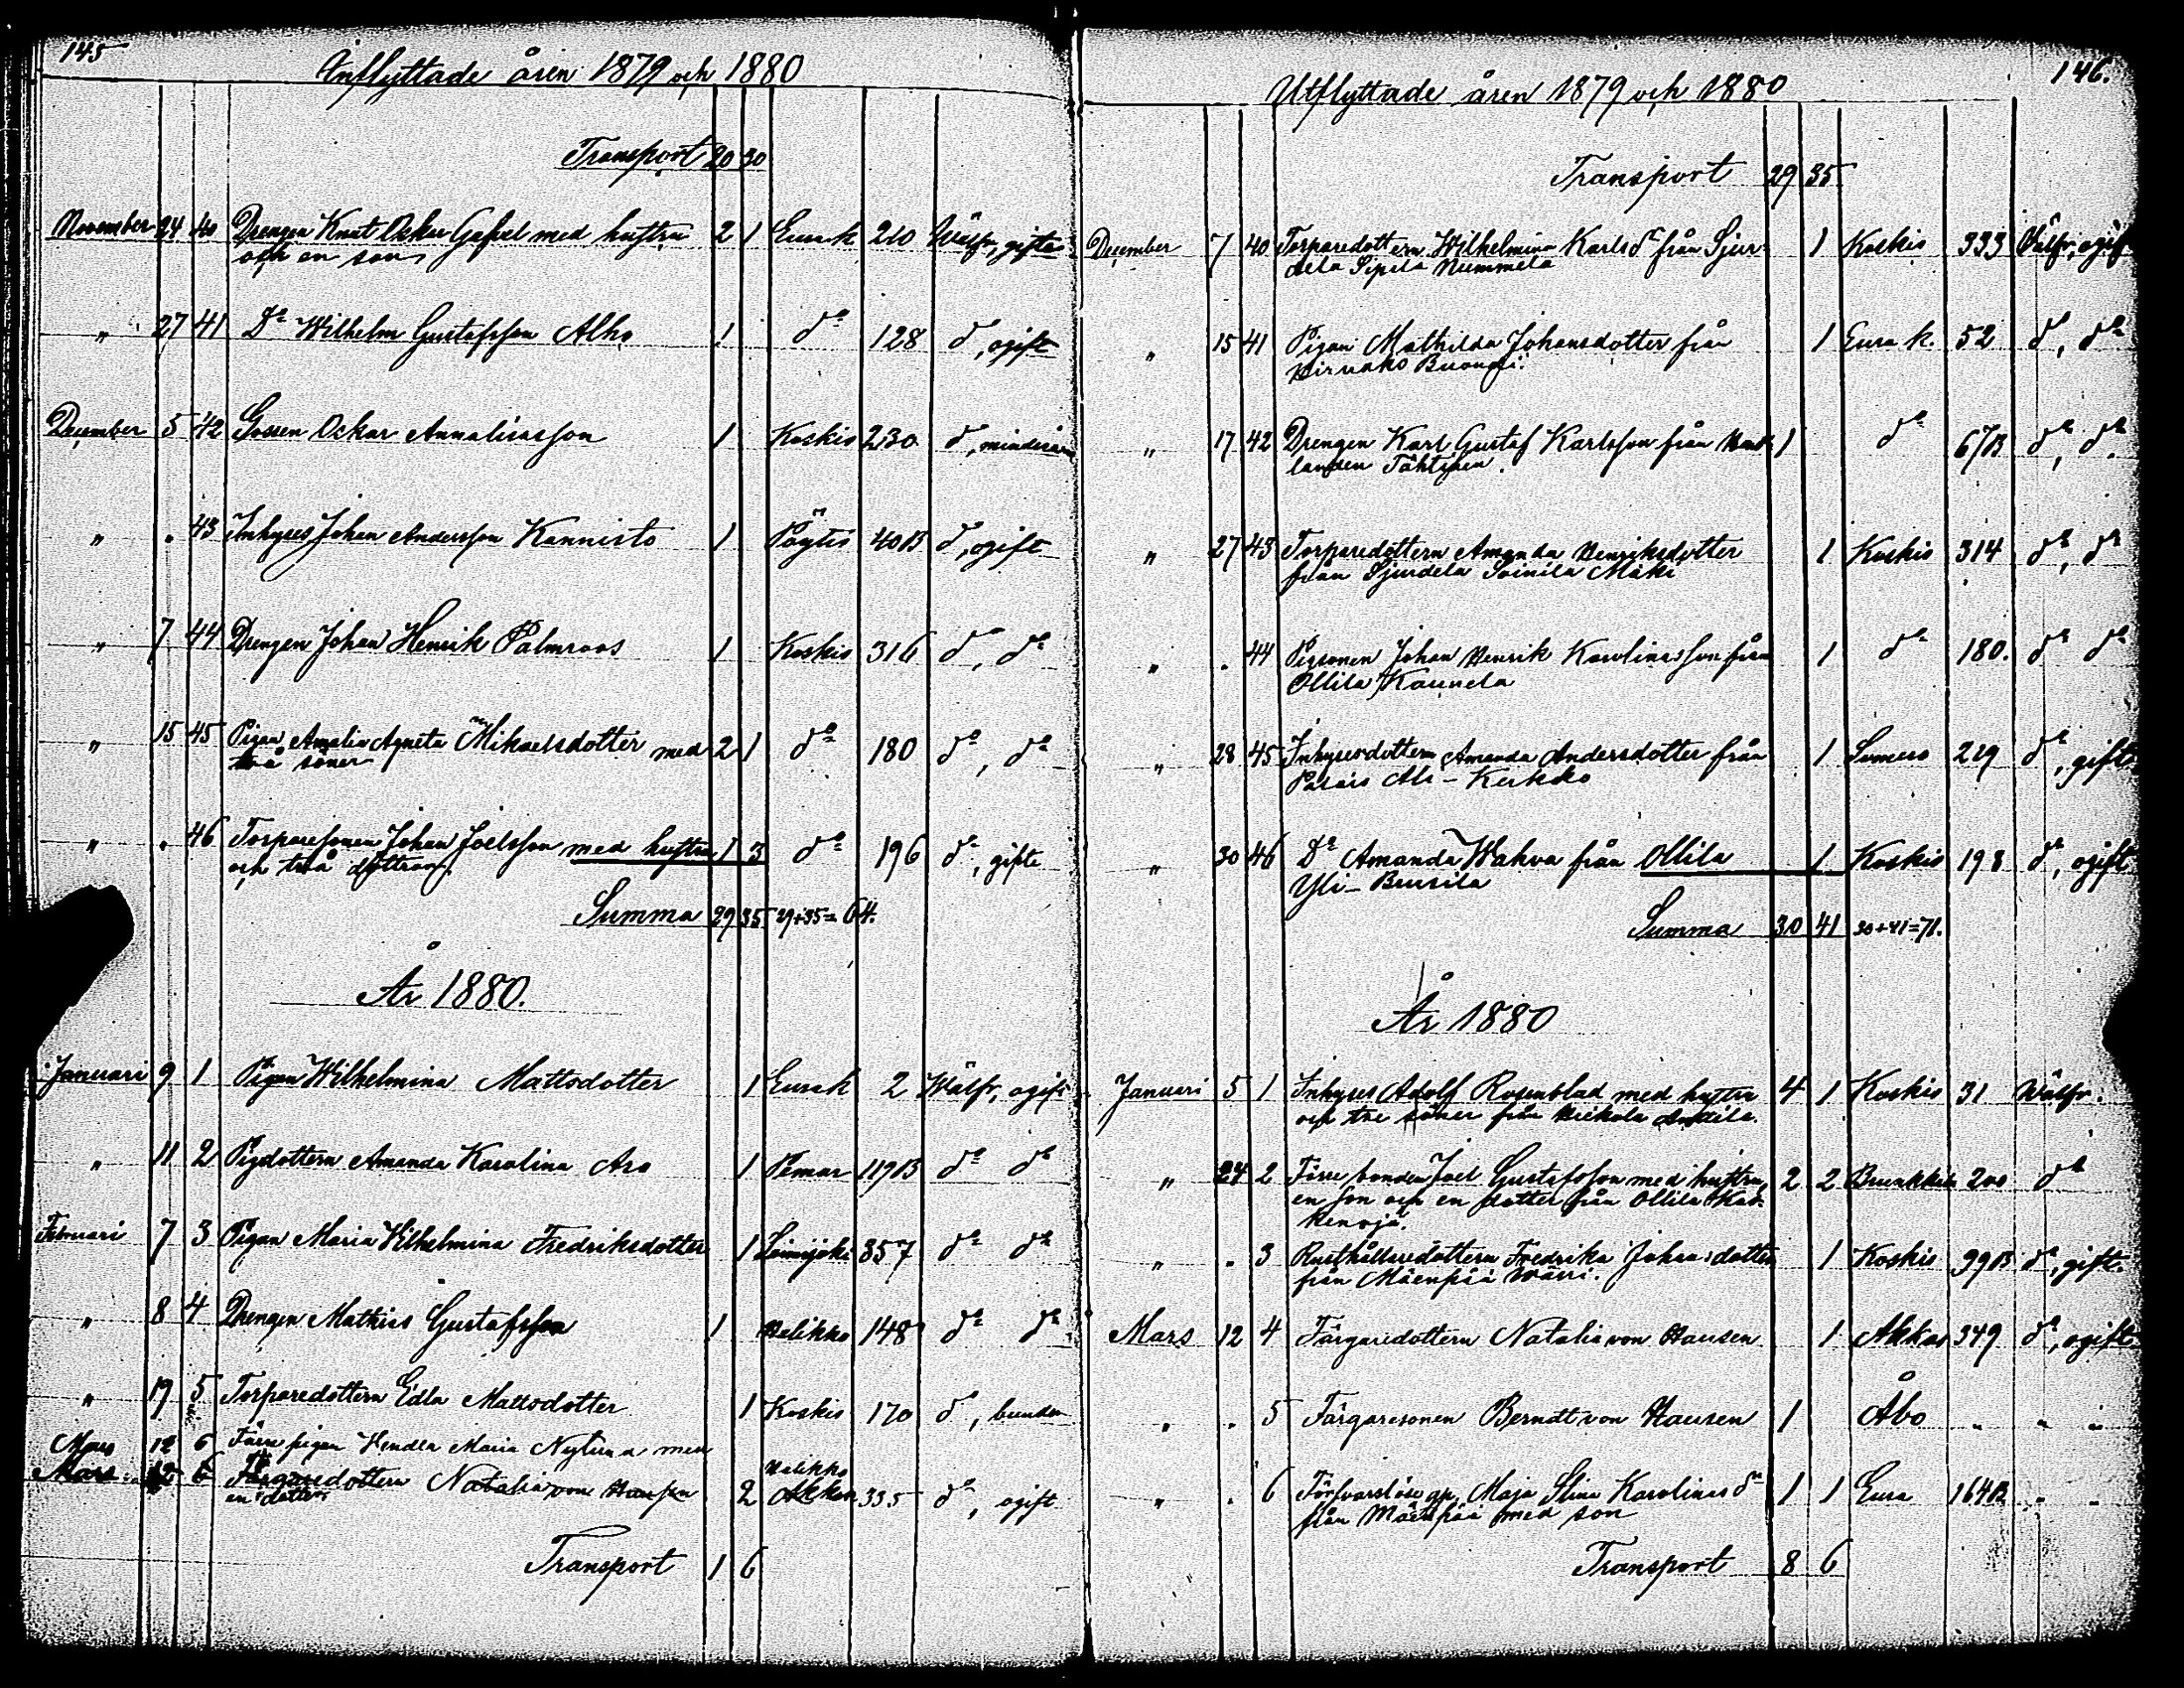 145
Inflyttade åren 1879 och 1880
Transport 20 30
November 24 40 Drengen Knut Oskar med hustru 2 1 Eura k 210 Wälfr, gifte
och en son
" 27 41 Dº Wilhelm Gustafsson Alho 1 dº 128 dº, ogift
December 5 42 Gossen Oskar Annalisasson 1 Koskis 230 dº, minderårig
" " 43 Inhyses Johan Andersson Kannisto 1 Pöytis 40B dº, ogift
" 7 44 Drengen Johan Henrik Palmroos 1 Koskis 316 dº, dº
" 15 45 Pigan Amalia Agneta Mikaelsdotter med 2 1 dº 180 dº, dº
två söner
" " 46 Torparesonen Johan Joelsson med hustru 1 3 dº 196 dº, gifte
och två döttrar
Summa 29 35 29+35=64.
År 1880.
Januari 9 1 Pigan Wilhelmina Mattsdotter 1 Eura k 2 Wälfr, ogift
" 11 2 Pigdottern Amanda Karolina Aro 1 Pemar 119B dº dº
Februari 7 3 Pigan Maria Vilhelmina Fredriksdotter 1 Loimijoki 357 dº dº
" 8 4 Drengen Mathias Gustafsson 1 Halikko 148 dº dº
" 19 5 Torparedottern Edla Mattsdotter 1 Koskis 170 dº,
Mars 12 6 Förre pigan Hendla Maria med
Mars 12 6 Färgaredottern Natalia von Hausen 2 Halikko Akkas 335 dº, ogift
en dotter
Transport 1 6
146.
Utflyttade åren 1879 och 1880
Transport 29 35
December 7 40 Torparedottern Wilhelmina Karlsdr från Sjur- 1 Koskis 333 Wälfr, ogift
dela Sipilä Nummela
" 15 41 Pigan Mathilda Johansdotter från 1 Eura k. 52 dº, dº
Hirvako
" 17 42 Drengen Karl Gustaf Karlsson från 1 dº 67B dº, dº
Tähtinen.
" 27 43 Torparedottern Amanda Henriksdotter 1 Koskis 314 dº, dº
från Sjurdela Soinila Mäki
" " 44 Pigsonen Johan Henrik Karolinasson från 1 dº 180. dº dº
Ollila Kaunela
" 28 45 Inhysesdottern Amanda Andersdotter från 1 Somero 229 dº, gift
Palais Ali-Kerkko
" 30 46 Dº Amanda Wahva från Ollila 1 Koskis 198 dº, ogift
Yli-Brusila
Summa 30 41 30+41=71.
År 1880
Januari 5 1 Inhyses Adolf Rosenblad med hustru 4 1 Koskis 31 Wälfr.
och tre söner från Heikola
" 24 2 Förre bonden Joel Gustafsson med hustru, 2 2 200 dº
en son och en dotter från Ollila Kas-
kenoja.
" " 3 Rusthållaredottern Fredrika Johansdotter 1 Koskis 99B dº, gift.
från Mäenpää
Mars 12 4 Färgaredottern Natalia von Hausen 1 Akkas 349 dº, ogift
" " 5 Färgaresonen Berndt von Hausen 1 Åbo " " "
" " 6 Försvarslösa qp. Maja Stina Karolinasdr 1 1 Eura 164B " "
från Mäenpää med son
Transport 8 6